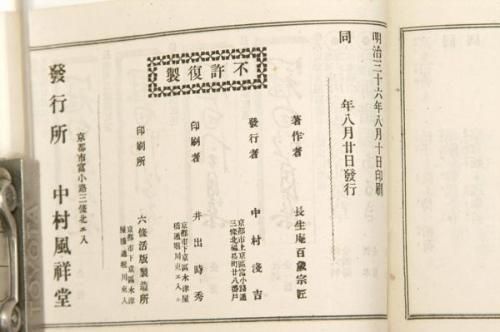 明治三十六年八月十日印刷
同　年八月廿日發行
不許復製
著作者　長生庵百歲宗匠
發行者
京都市上京區富小路通
三條北福長町廿八番戶
中村淺吉
印刷者
京都市下京區木津屋
橋通堀川東エ入
井出時秀
印刷所
京都市下京區木津
屋橋通堀川東入
六條活版製造所
發行所
京都市富小路三條北エ入
中村風祥堂